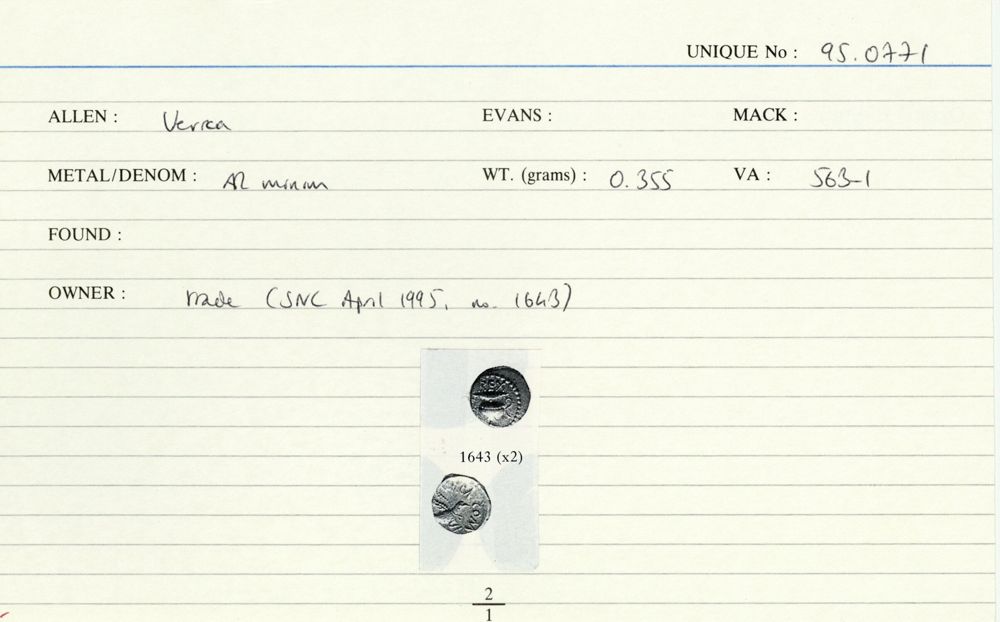 UNIQUE No : 95.0771
ALLEN : Verica EVANS : MACK :
METAL/DENOM : AR minim WT. (grams) : 0.355 VA : 563-1
FOUND :
OWNER : trade (SNC April 1995, no. 1643)
REX
1643 (x2)
2
1